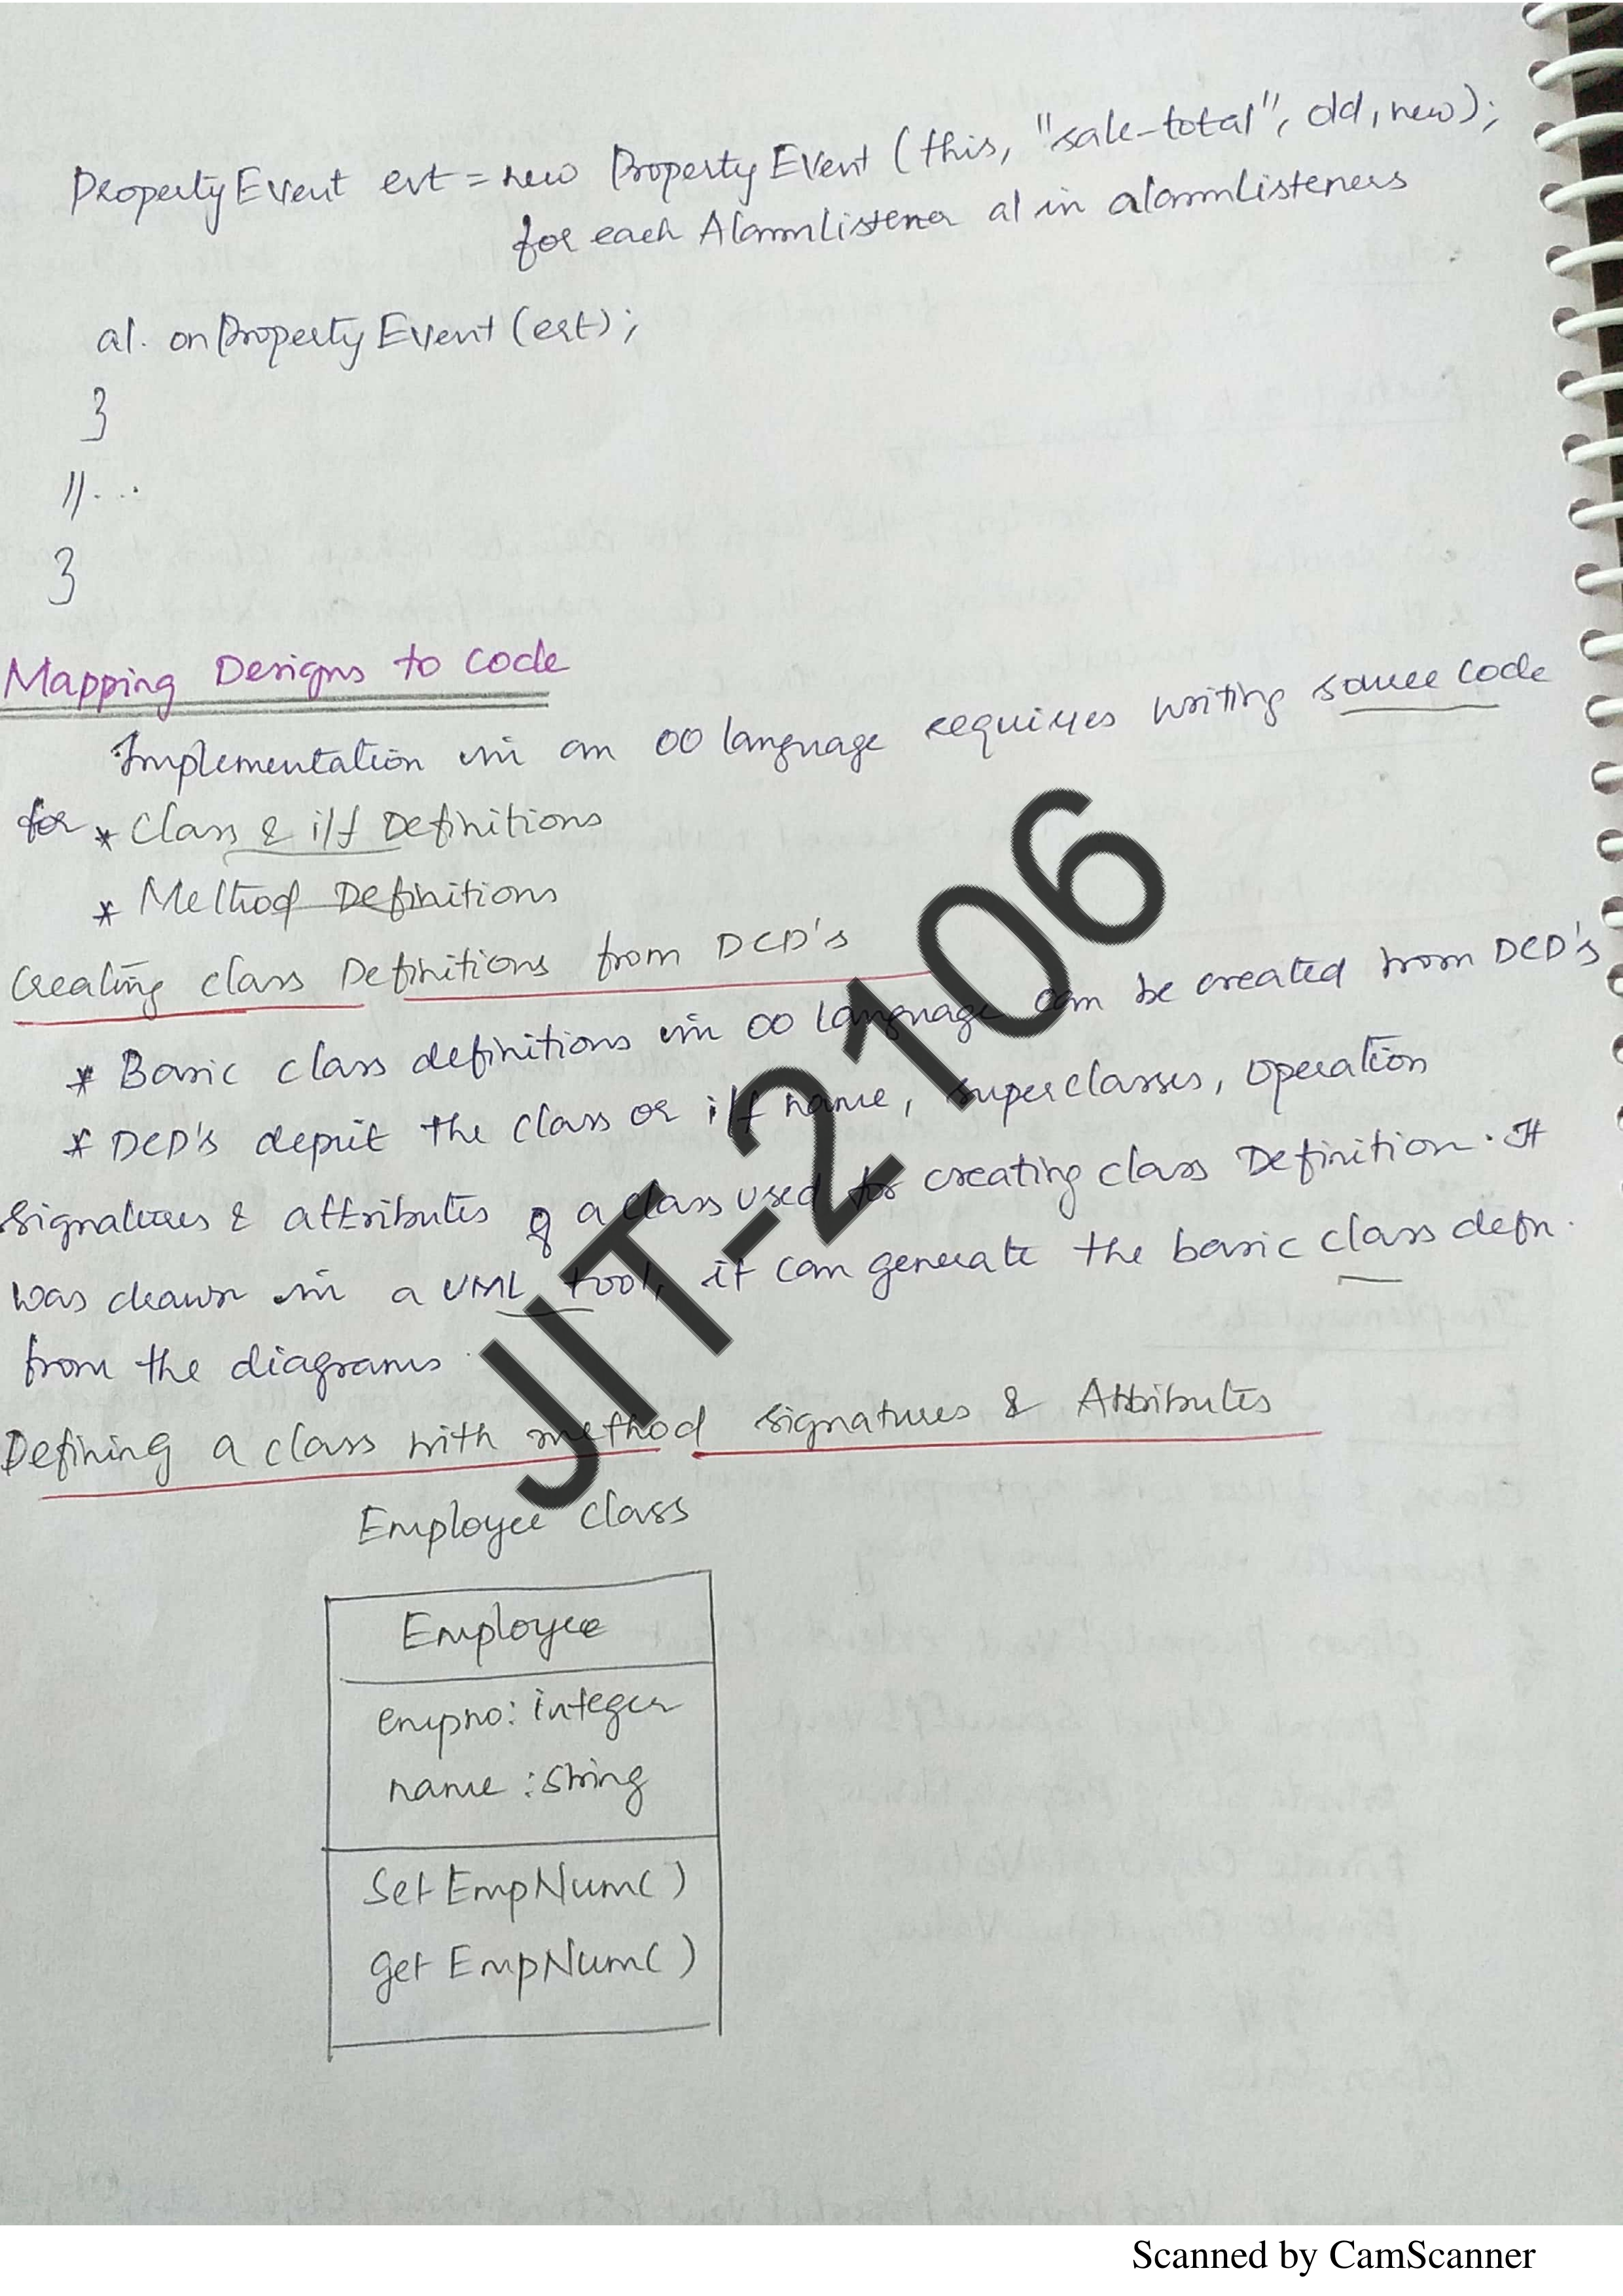 PropertyEvent evt = new PropertyEvent (this, "sale-total", old, new);
for each AlarmListener al in alarmListeners
al. onPropertyEvent (evt);
}
//...
}
Mapping Designs to code
Implementation in an OO language requires writing source code
for * Class & i/f Definitions
* Method Definitions
Creating class Definitions from DCD's
* Basic class definitions in OO language can be created from DCD's
* DCD's depict the class or i/f name, superclasses, operation
signatures & attributes of a class used for creating class Definition. It
was drawn in a UML tool, it can generate the basic class defn.
from the diagrams.
Defining a class with method signatures & Attributes
Employee class
Employee
empno: integer
name : string
Set EmpNum( )
get EmpNum( )
JIT-2106
Scanned by CamScanner